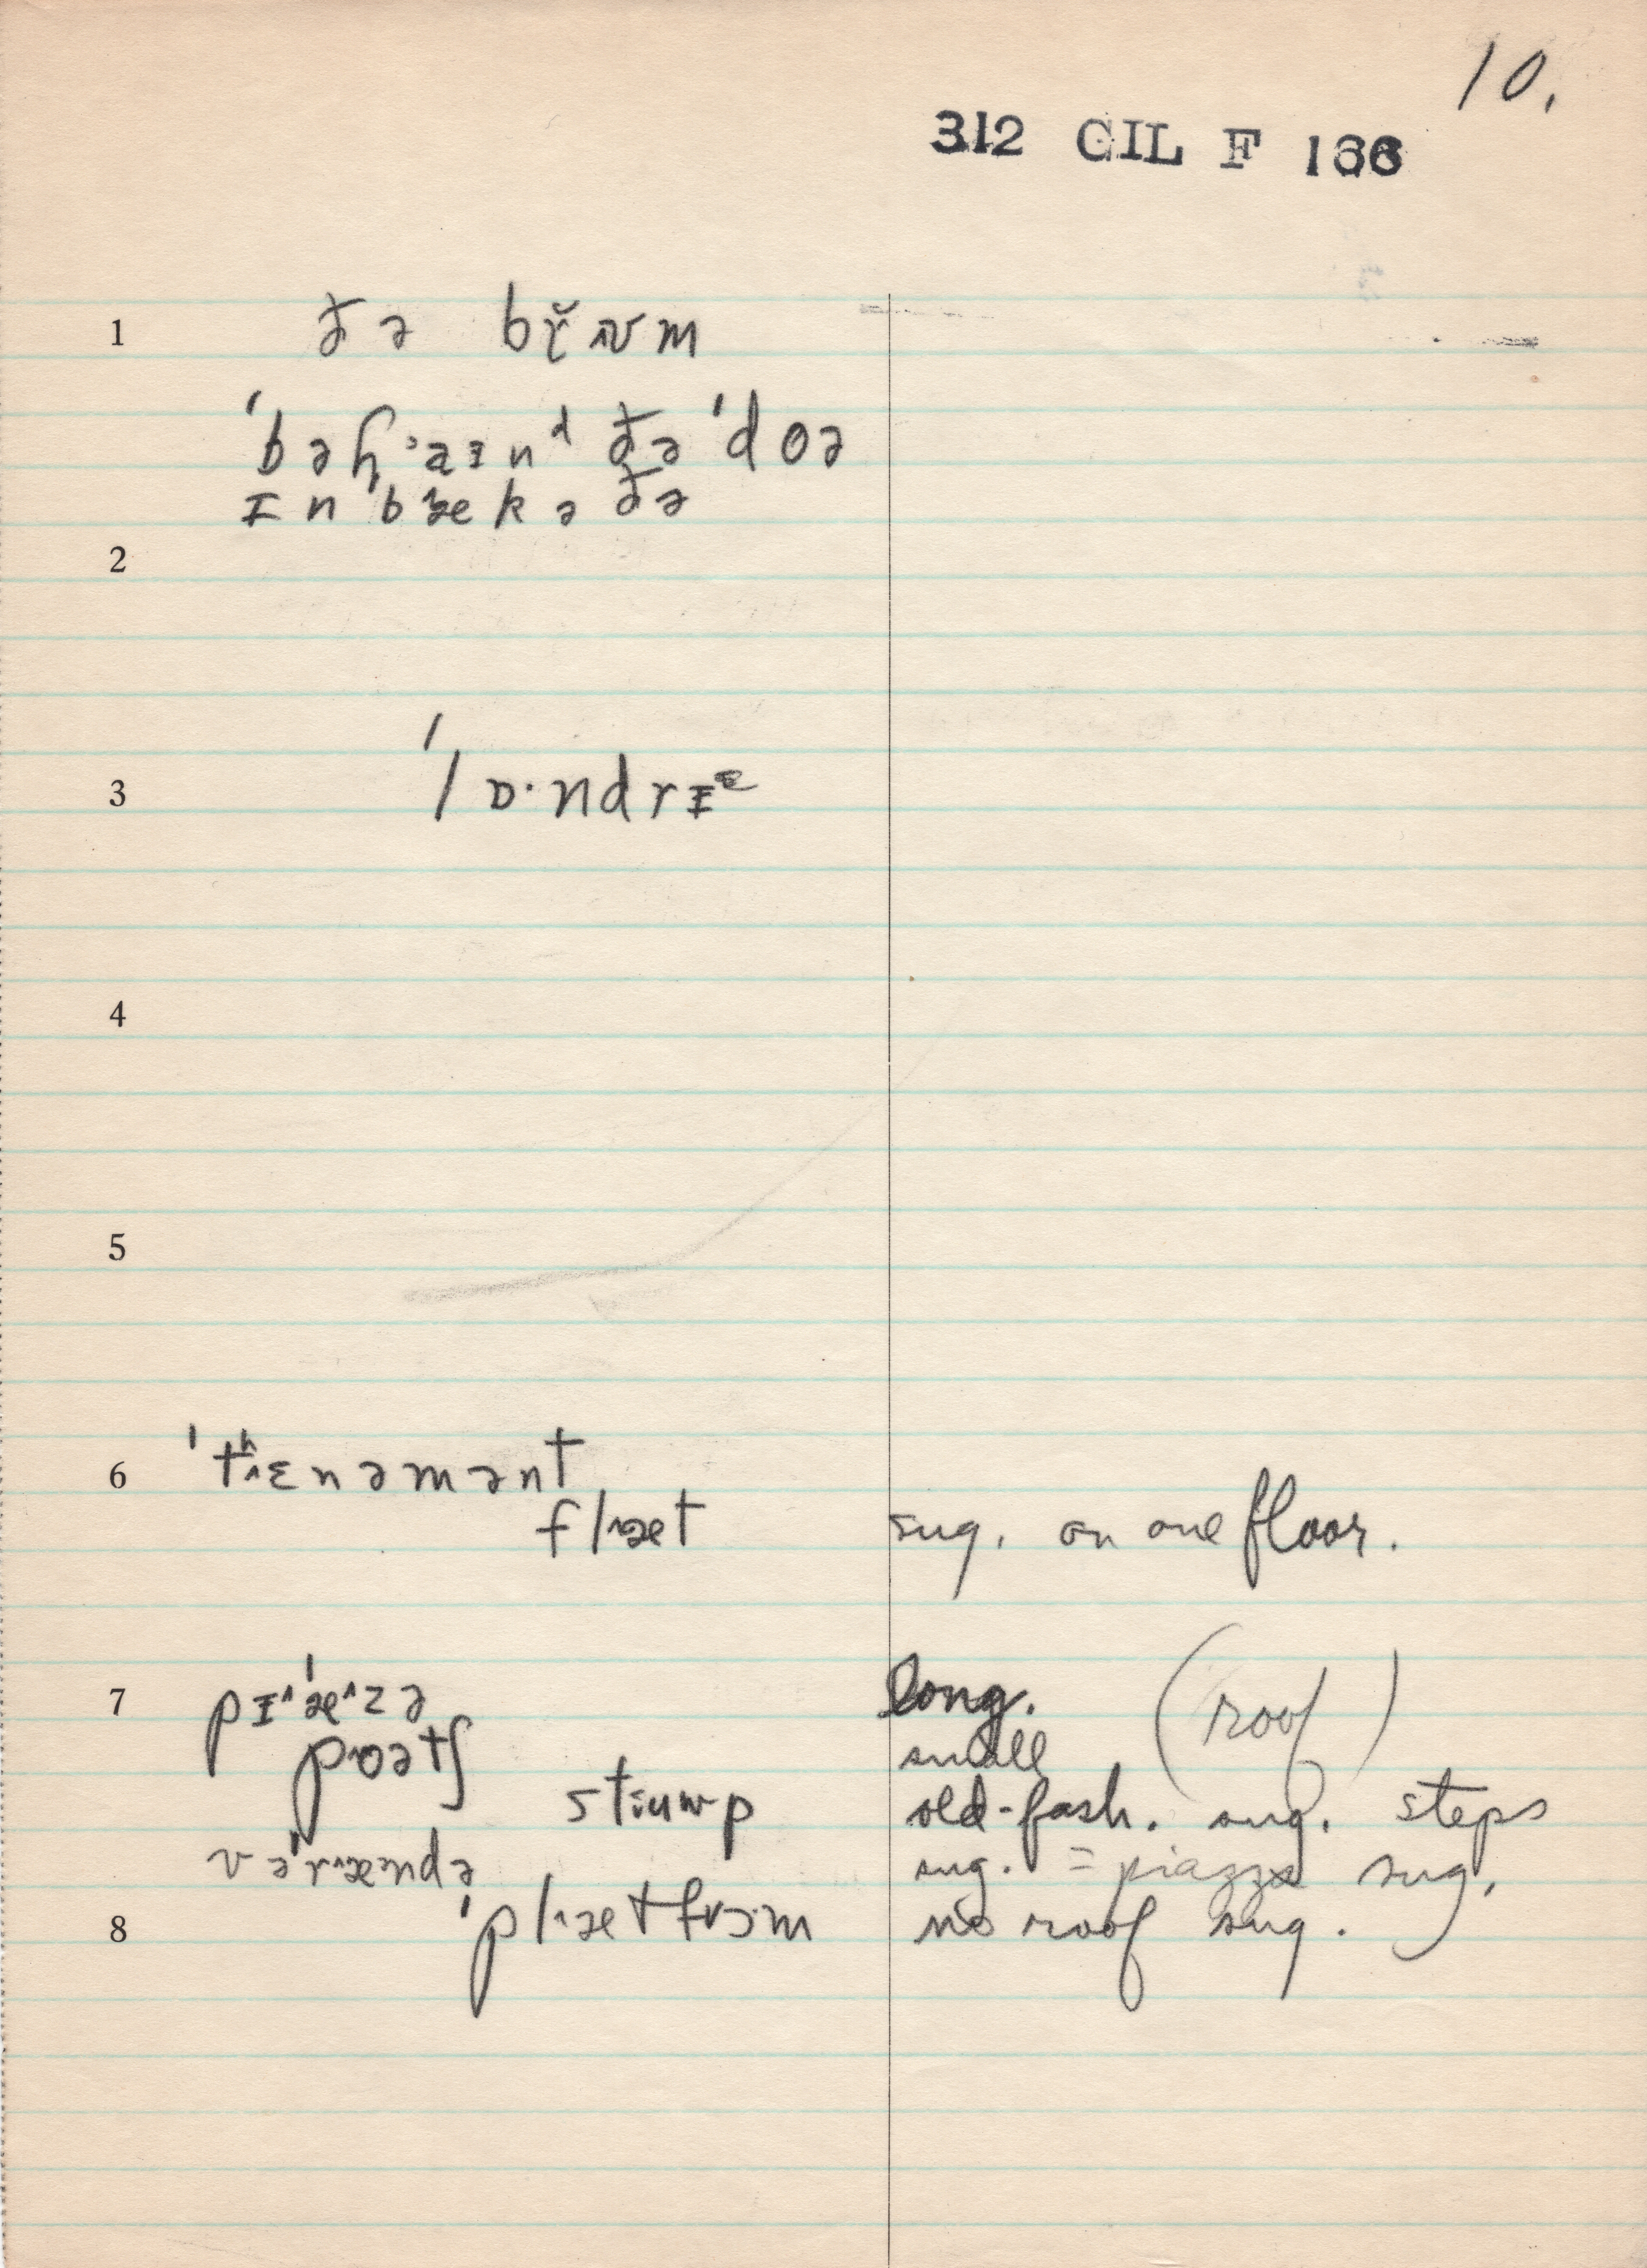 10.
312 GIL F 166
1 ðə br̆ʌʊm
ˈbəɦaɪnᵈ ðə ˈdoə
ɪn ˈbæk ə ðə
2
3 ˈlɒ·ndrɪᵋ
4
5
6 ˈtʰɛnəmənt
flæt sug. on one floor.
7 pɪˈæzə long. (roof)
poətʃ small
stuup old-fash. sug. steps
vəˈrændə sug. = piazza sug.
8 ˈplætfɔ·m no roof sug.